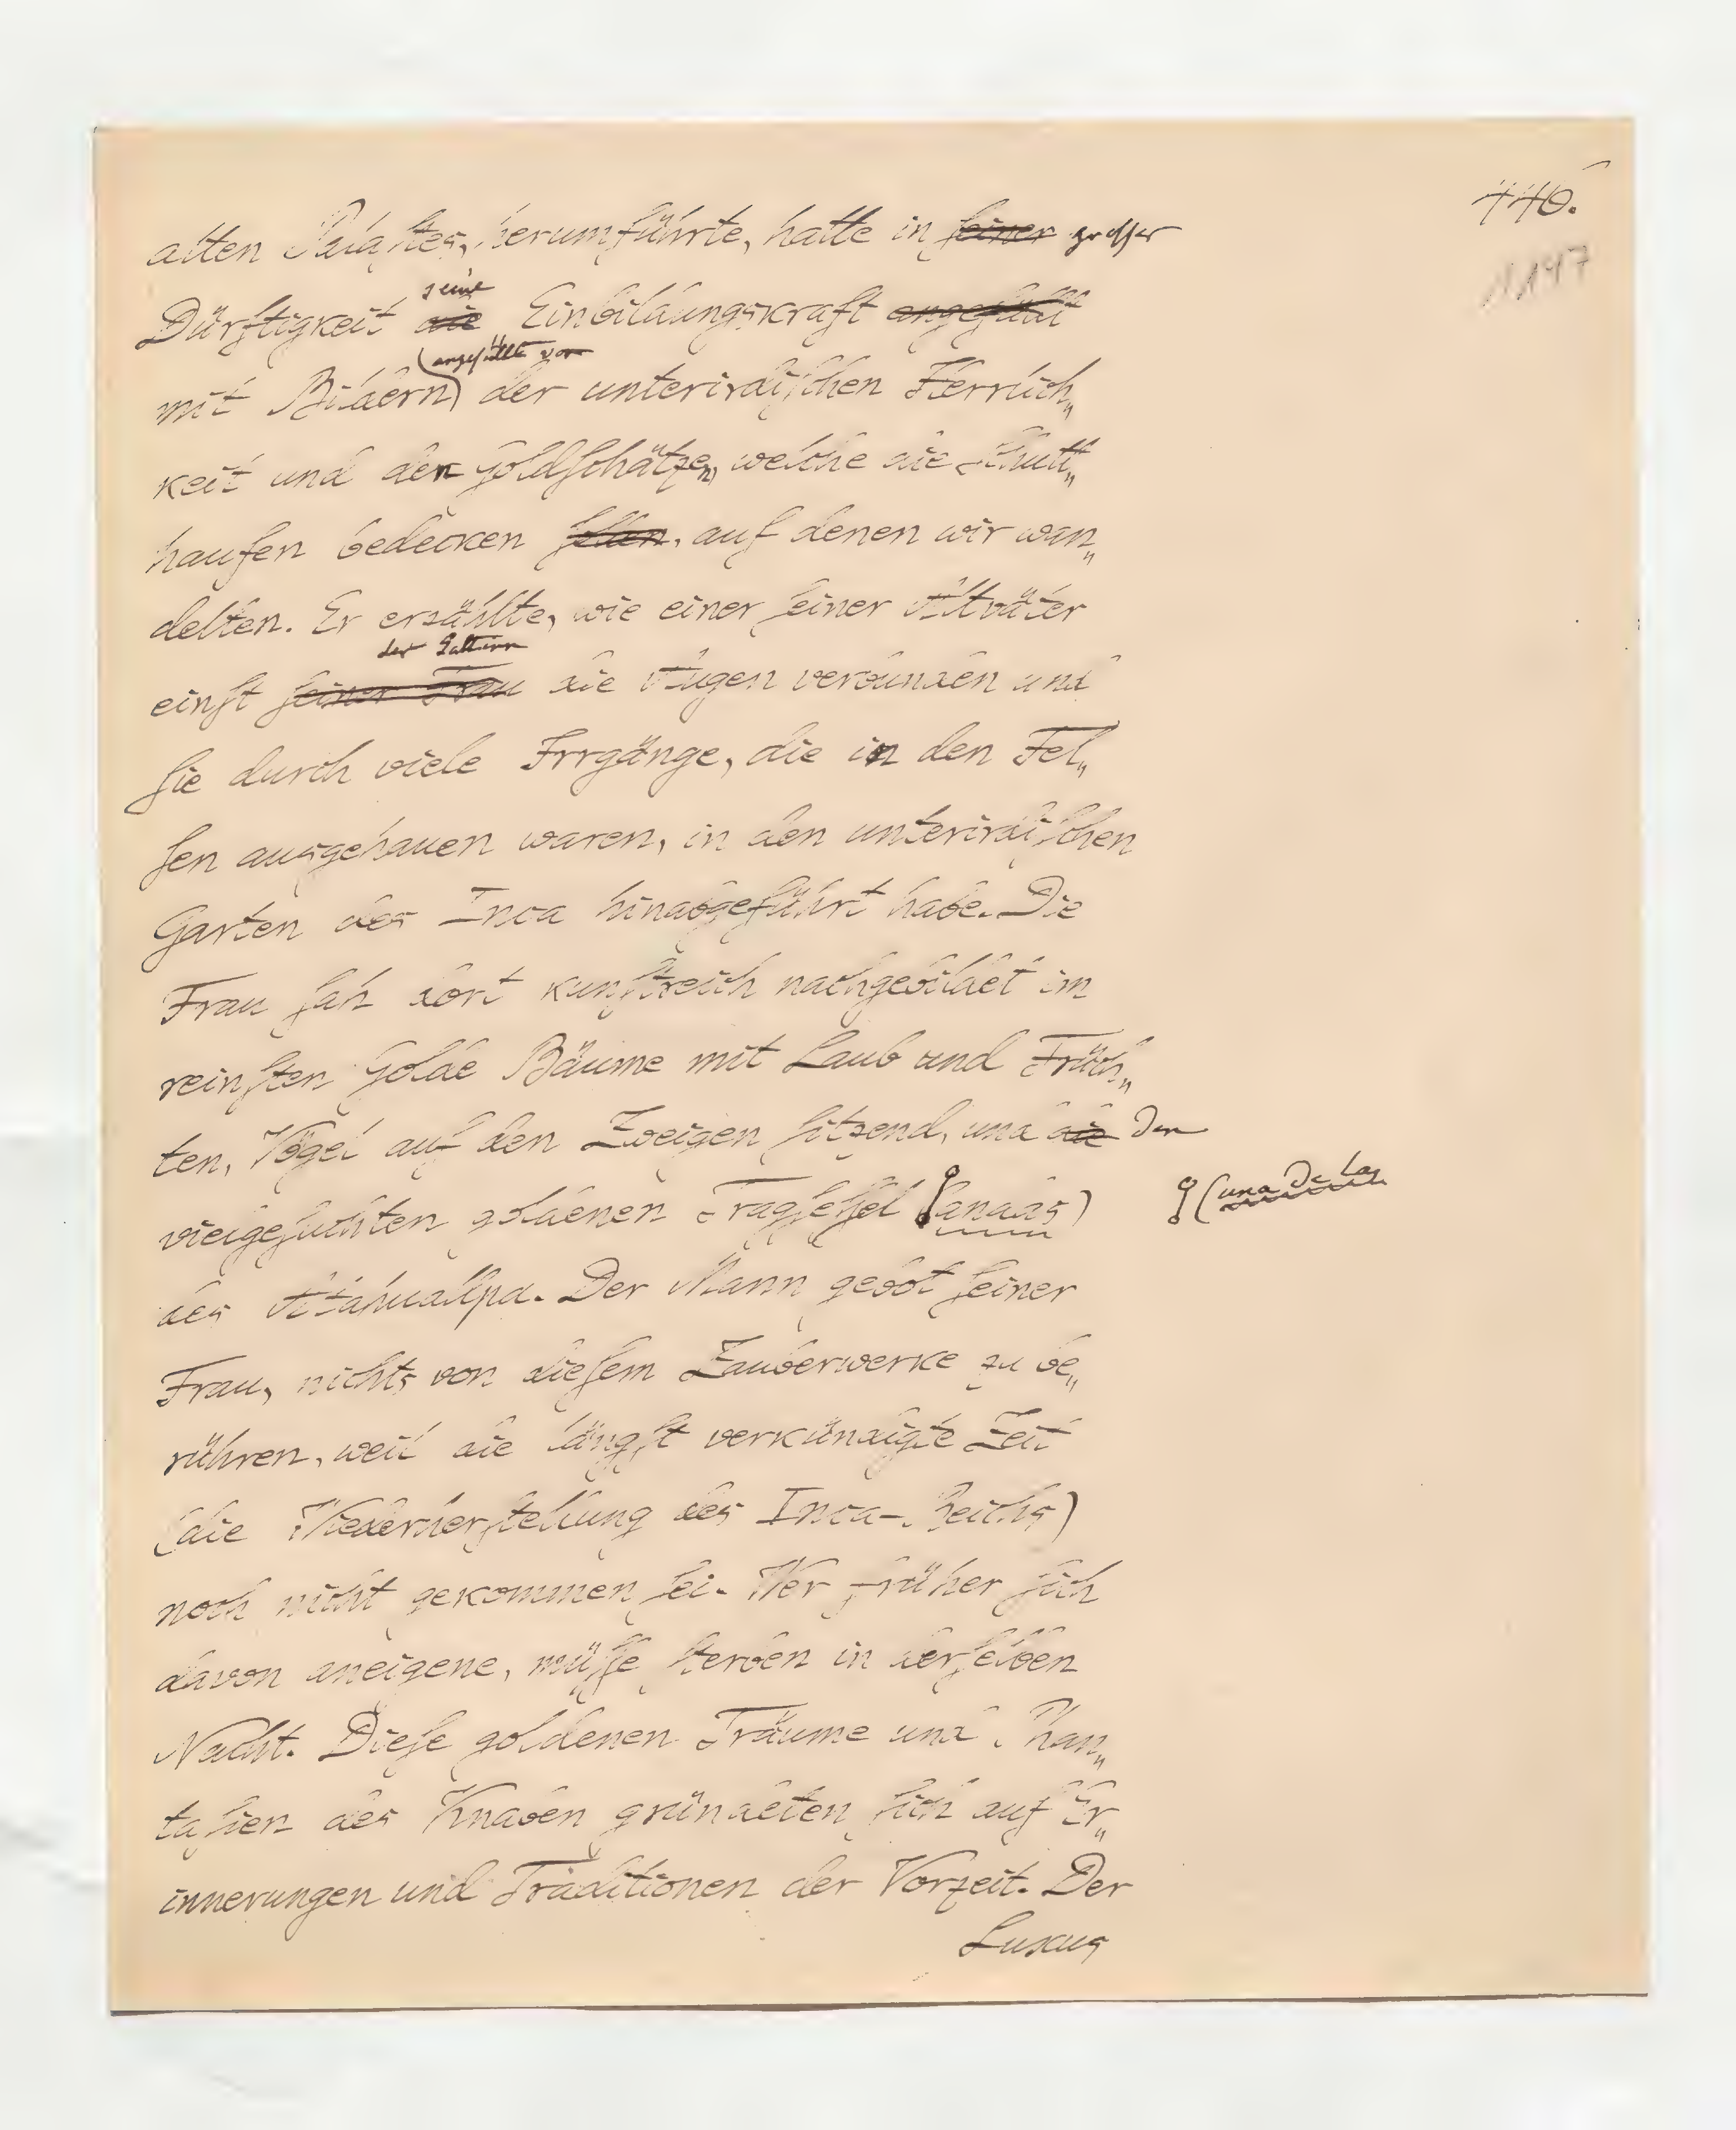 146.
147
alten Palastes, herumführte, hatte in seiner grosser
seine
Dürftigkeit die Einbildungskraft angefüllt
angefüllt von
mit Bildern der unterirdischen Herrlich„
keit und den Goldschätzen, welche die Schutt„
haufen bedecken sollen, auf denen wir wan„
delten. Er erzählte, wie einer seiner Altväter
der Gattinn
einst seiner Frau die Augen verbunden und
sie durch viele Irrgänge, die in den Fel„
sen ausgehauen waren, in den unterirdischen
Garten des Inca hinabgeführt habe. Die
Frau sah dort kunstreich nachgebildet im
reinsten Golde Bäume mit Laub und Früch„
ten, Vögel auf den Zweigen sitzend, und die den
vielgesuchten goldenen Tragsessel (andas)
(una de las
des Atahuallpa. Der Mann gebot seiner
Frau, nichts von diesem Zauberwerke zu be„
rühren, weil die längst verkündigte Zeit
(die Wiederherstellung des Inca-Reichs)
noch nicht gekommen sei. Wer früher sich
davon aneigene, müsse sterben in derselben
Nacht. Diese goldenen Träume und Phan„
tasien des Knaben gründeten sich auf Er„
innerungen und Traditionen der Vorzeit. Der
Luxus